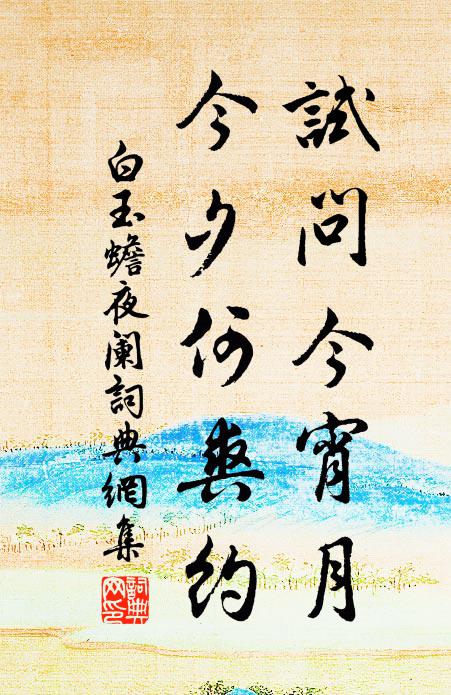 試問今宵月
今夕何爽約
白玉蟾夜闌詞典網集